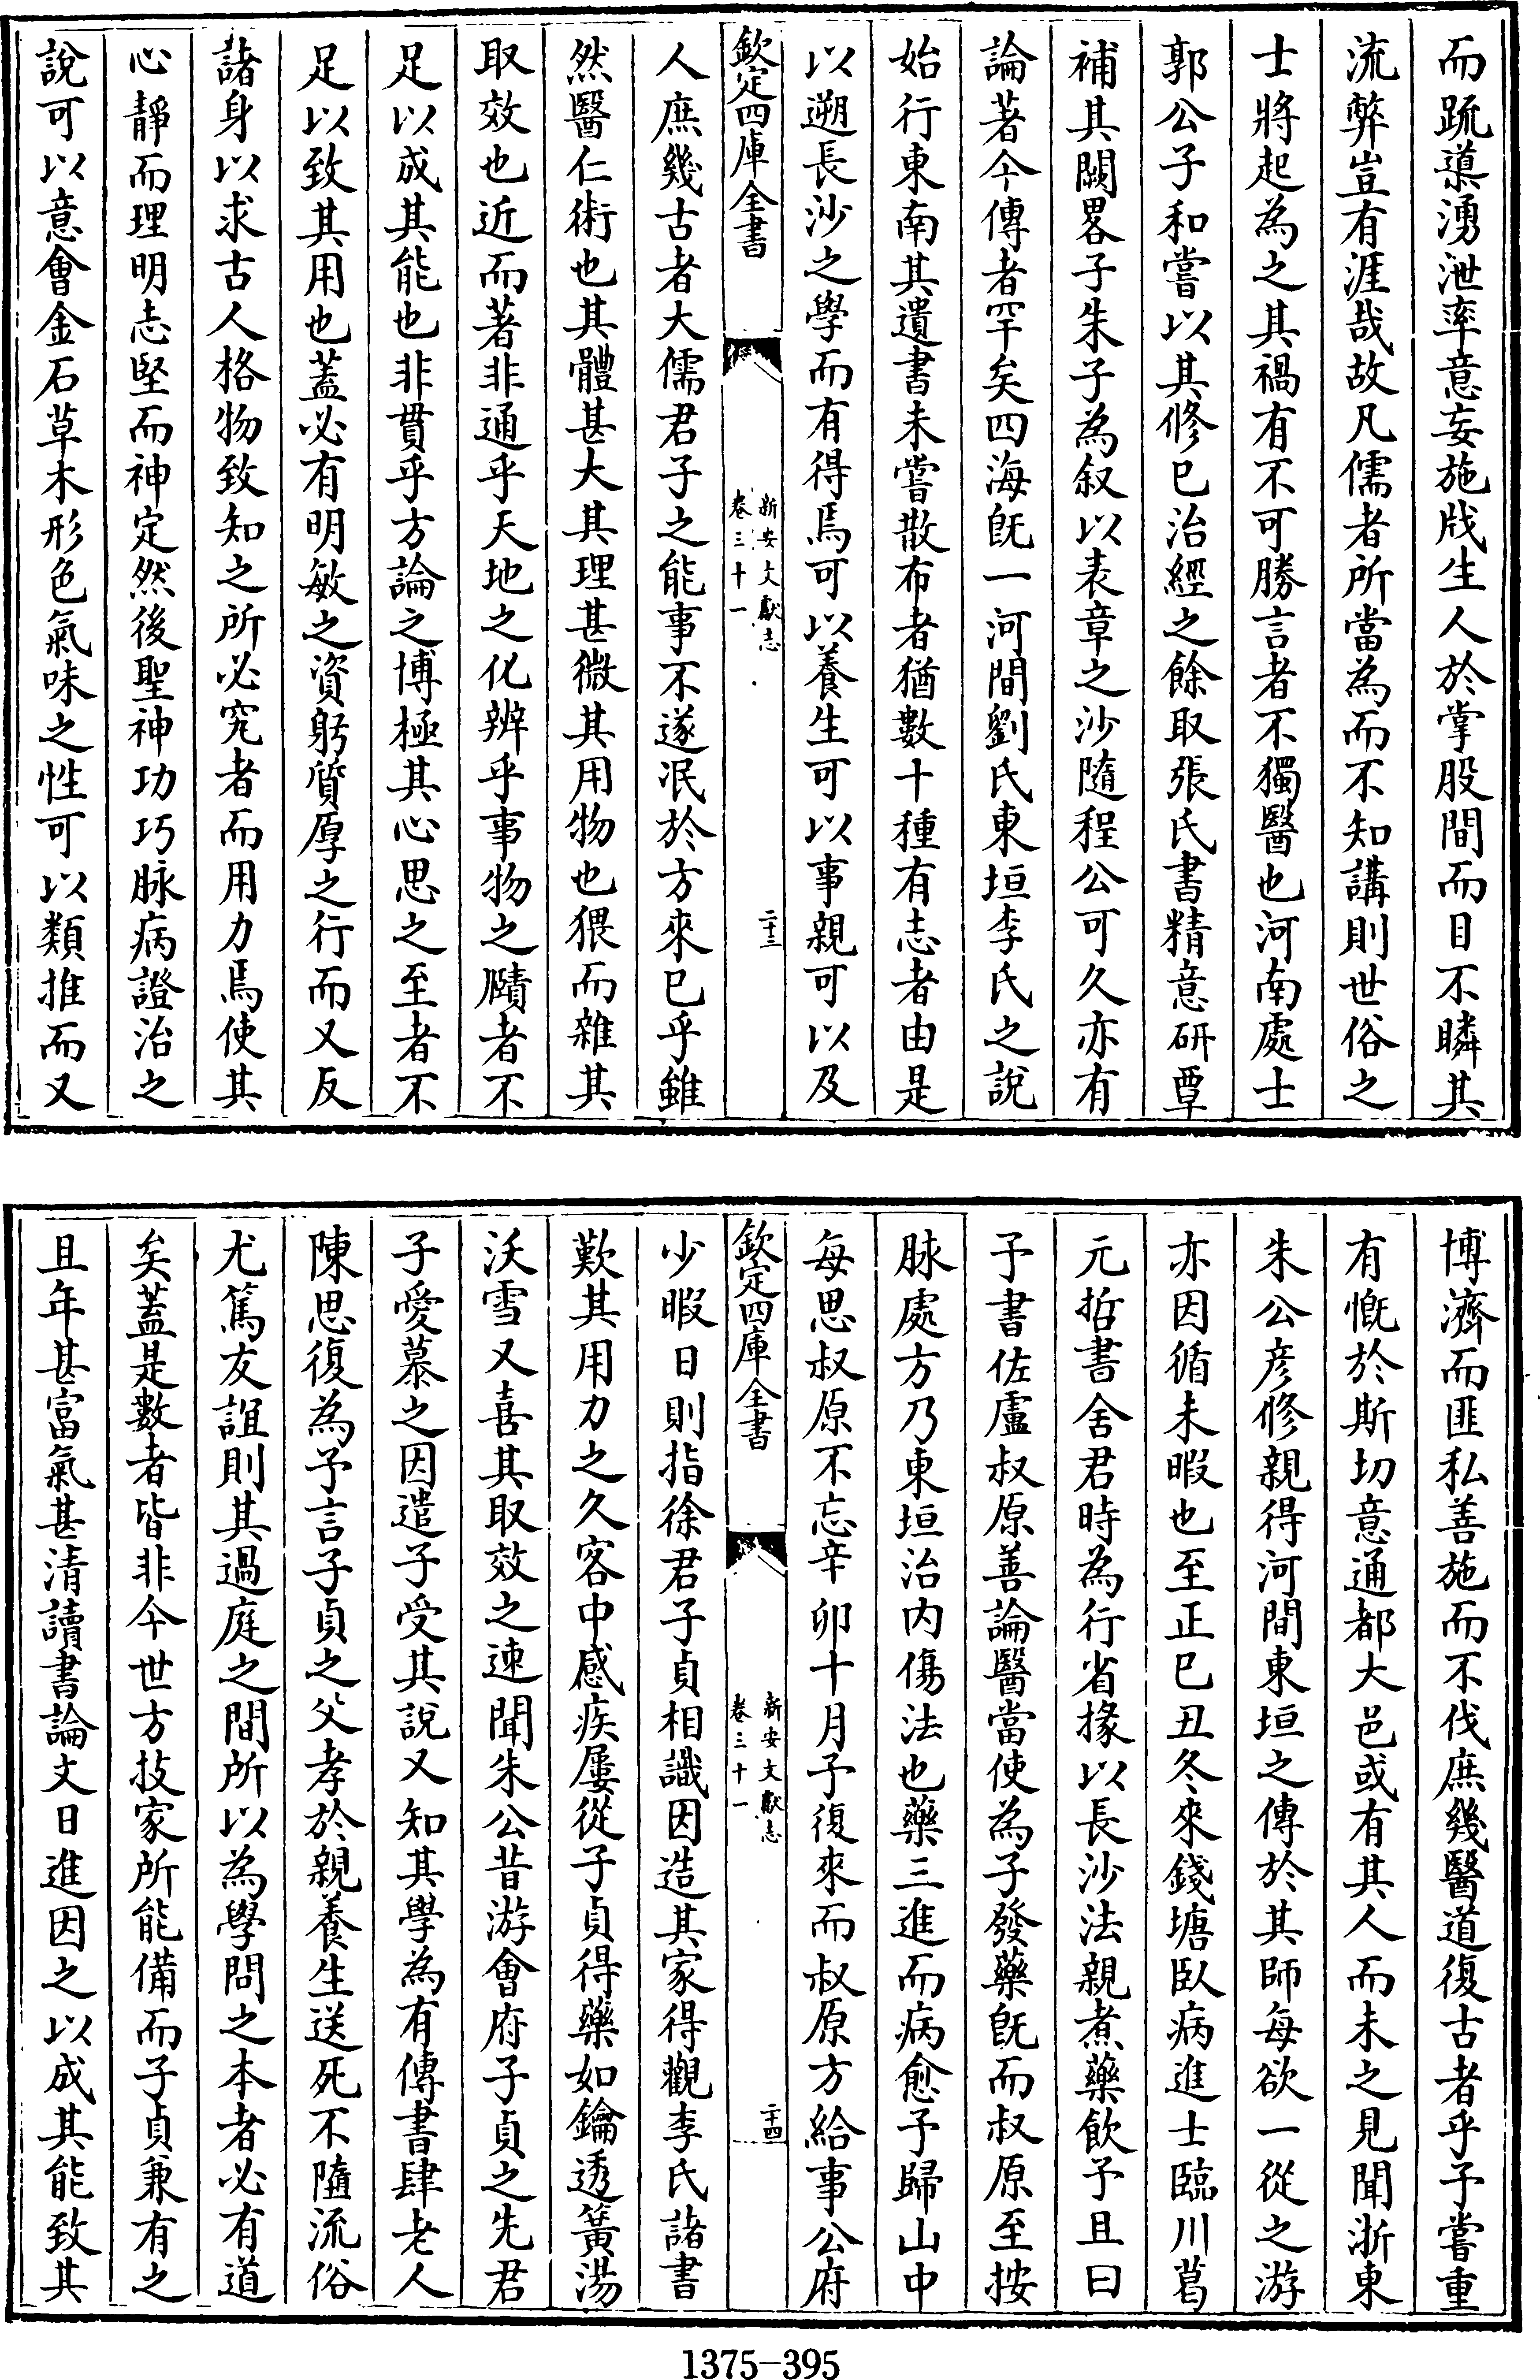 而疏𣻳湧泄率意妄施戕生人於掌股間而目不瞬其
流弊豈有涯哉故凡儒者所當為而不知講則世俗之
士將起為之其禍有不可勝言者不獨醫也河南處士
郭公子和嘗以其修已治經之餘取張氏書精意研覃
補其闕畧子朱子為叙以表章之沙隨程公可久亦有
論著今傳者罕矣四海旣一河間劉氏東垣李氏之說
始行東南其遺書未嘗散布者猶數十種有志者由是
以遡長沙之學而有得焉可以養生可以事親可以及
欽定四庫全書
新安文獻志
卷三十一
二十三
人庶幾古者大儒君子之能事不遂泯於方來已乎雖
然醫仁術也其體甚大其理甚微其用物也猥而雜其
取效也近而著非通乎天地之化辨乎事物之賾者不
足以成其能也非貫乎方論之博極其心思之至者不
足以致其用也蓋必有明敏之資躬質厚之行而又反
諸身以求古人格物致知之所必究者而用力焉使其
心靜而理明志堅而神定然後聖神功巧脉病證治之
說可以意會金石草木形色氣味之性可以類推而又
博濟而匪私善施而不伐庶幾醫道復古者乎予嘗重
有慨於斯切意通都大邑或有其人而未之見聞浙東
朱公彦修親得河間東垣之傳於其師每欲一從之游
亦因循未暇也至正已丑冬來錢塘臥病進士臨川葛
元哲書舍君時為行省掾以長沙法親煮藥飲予且曰
予書佐盧叔原善論醫當使為子發藥旣而叔原至按
脉處方乃東垣治内傷法也藥三進而病愈予歸山中
每思叔原不忘辛卯十月予復來而叔原方給事公府
欽定四庫全書
新安文獻志
卷三十一
二十四
少暇日則指徐君子貞相識因造其家得觀李氏諸書
歎其用力之久客中感疾屢從子貞得藥如鑰透簧湯
沃雪又喜其取效之速聞朱公昔游會府子貞之先君
子愛慕之因遣子受其說又知其學為有傳書肆老人
陳思復為予言子貞之父孝於親養生送死不隨流俗
尤篤友誼則其過庭之間所以為學問之本者必有道
矣蓋是數者皆非今世方技家所能備而子貞兼有之
且年甚富氣甚清讀書論文日進因之以成其能致其
1375-395